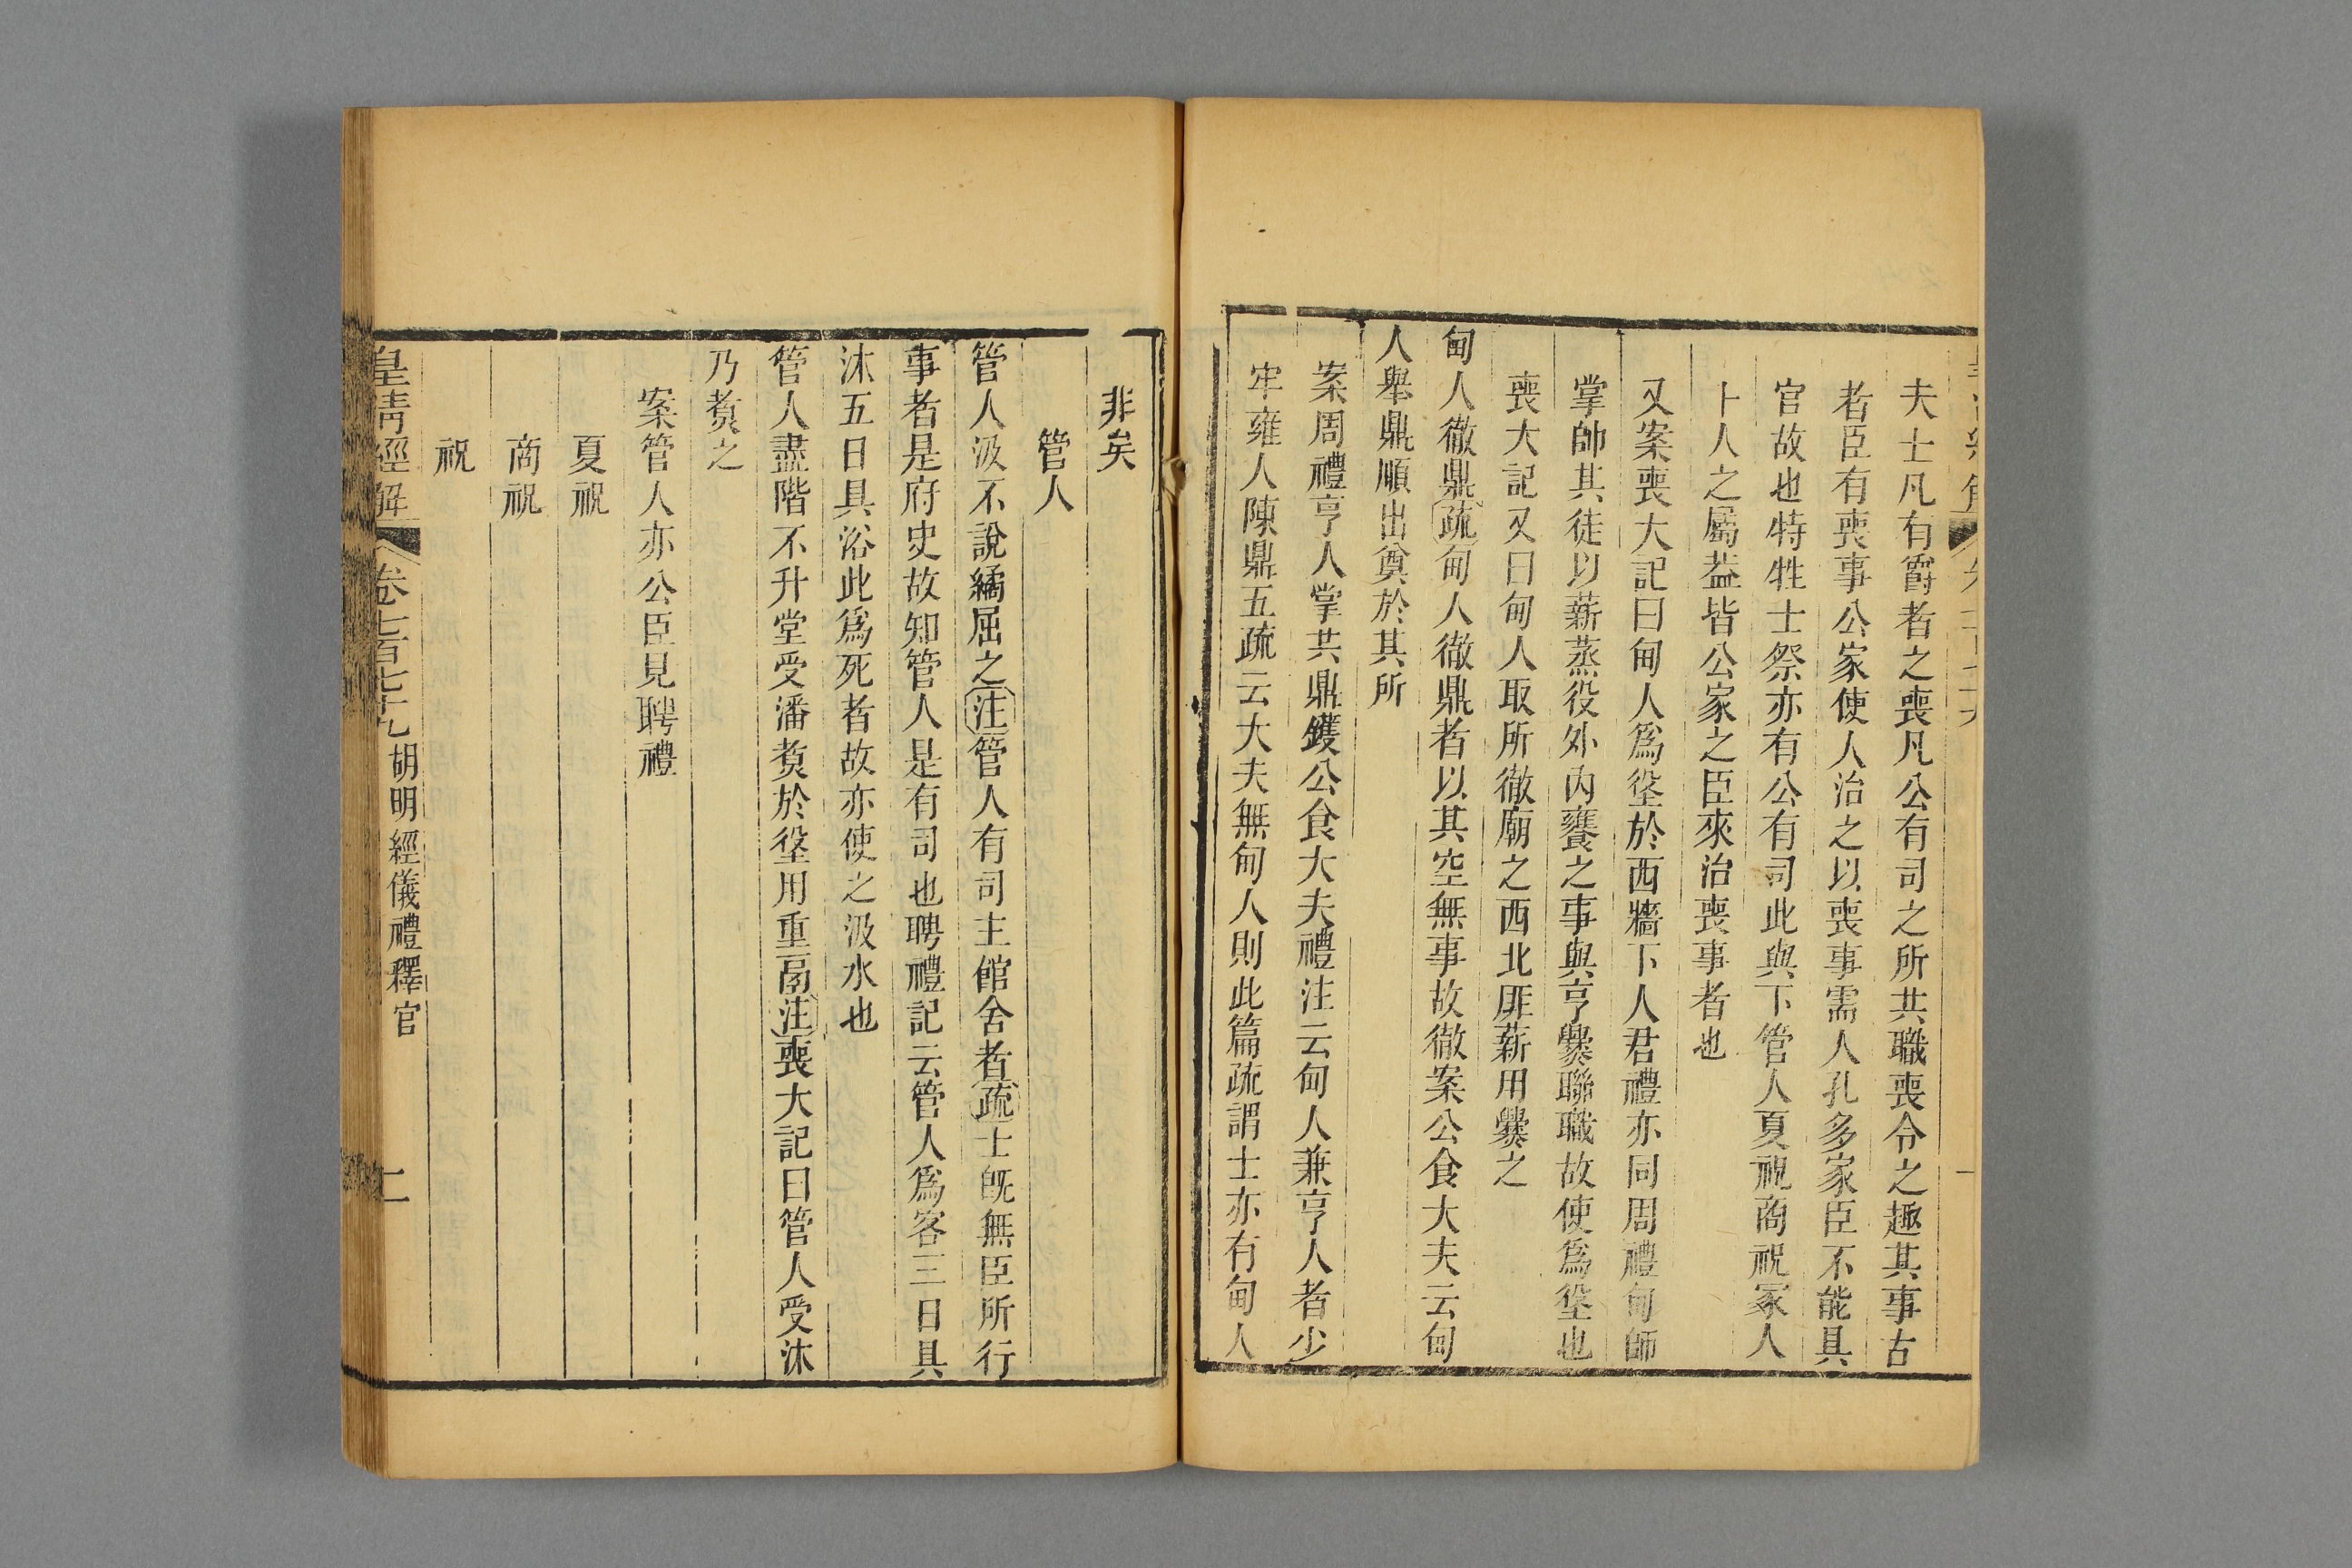 夫士凡有爵者之喪凡公有司之所共職喪令之趣其事古
者臣有喪事公家使人治之以喪事需人孔多家臣不能具
官故也特牲士祭亦有公有司此與下管人夏祝商祝冢人
卜人之屬葢皆公家之臣來治喪事者也
又案喪大記曰甸人爲垼於西牆下人君禮亦同周禮甸師
掌帥其徒以薪蒸役外內饔之事與亨爨聯職故使爲垼也
喪大記又曰甸人取所徹廟之西北厞薪用爨之
甸人徹鼎疏甸人徹鼎者以其空無事故徹案公食大夫云甸
人舉鼎順出奠於其所
案周禮亨人掌共鼎鑊公食大夫禮注云甸人兼亨人者少
牢雍人陳鼎五疏云大夫無甸人則此篇疏謂士亦有甸人
非矣
管人
管人汲不說繘屈之注管人有司主館舍者疏士旣無臣所行
事者是府史故知管人是有司也聘禮記云管人爲客三日具
沐五日具浴此爲死者故亦使之汲水也
管人盡階不升堂受潘煑於垼用重鬲注喪大記曰管人受沐
乃煑之
案管人亦公臣見聘禮
夏祝
商祝
祝
皇清經解
卷七百七十九 胡明經儀禮釋官
二